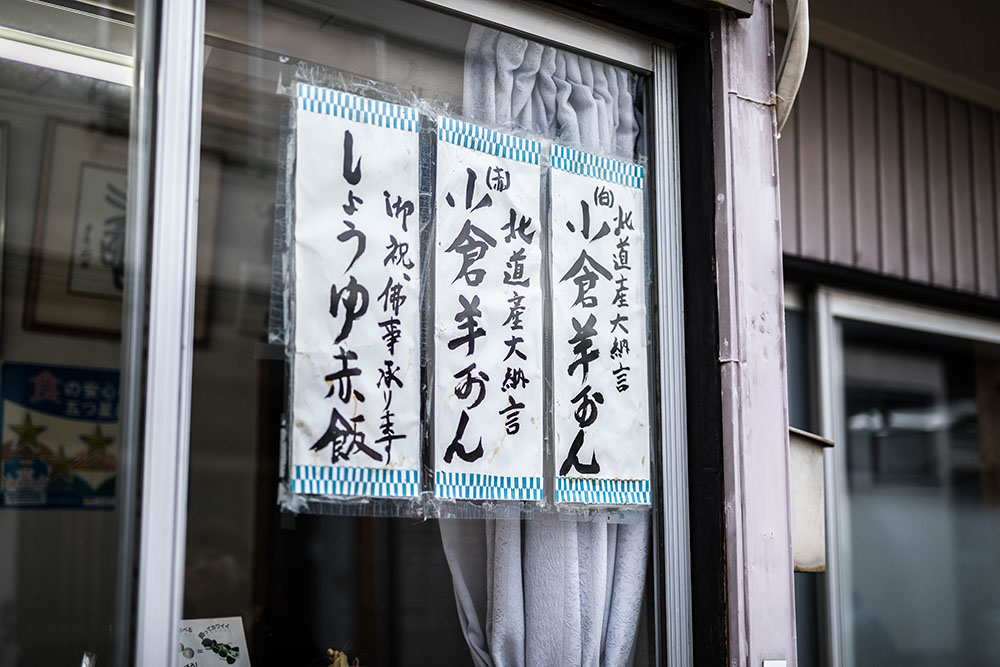 北道産大納言
㊀白 小倉羊おん
北道産大納言
㊀赤 小倉羊おん
御祝、佛事承ります
しょうゆ赤飯
食の安心
五つ星